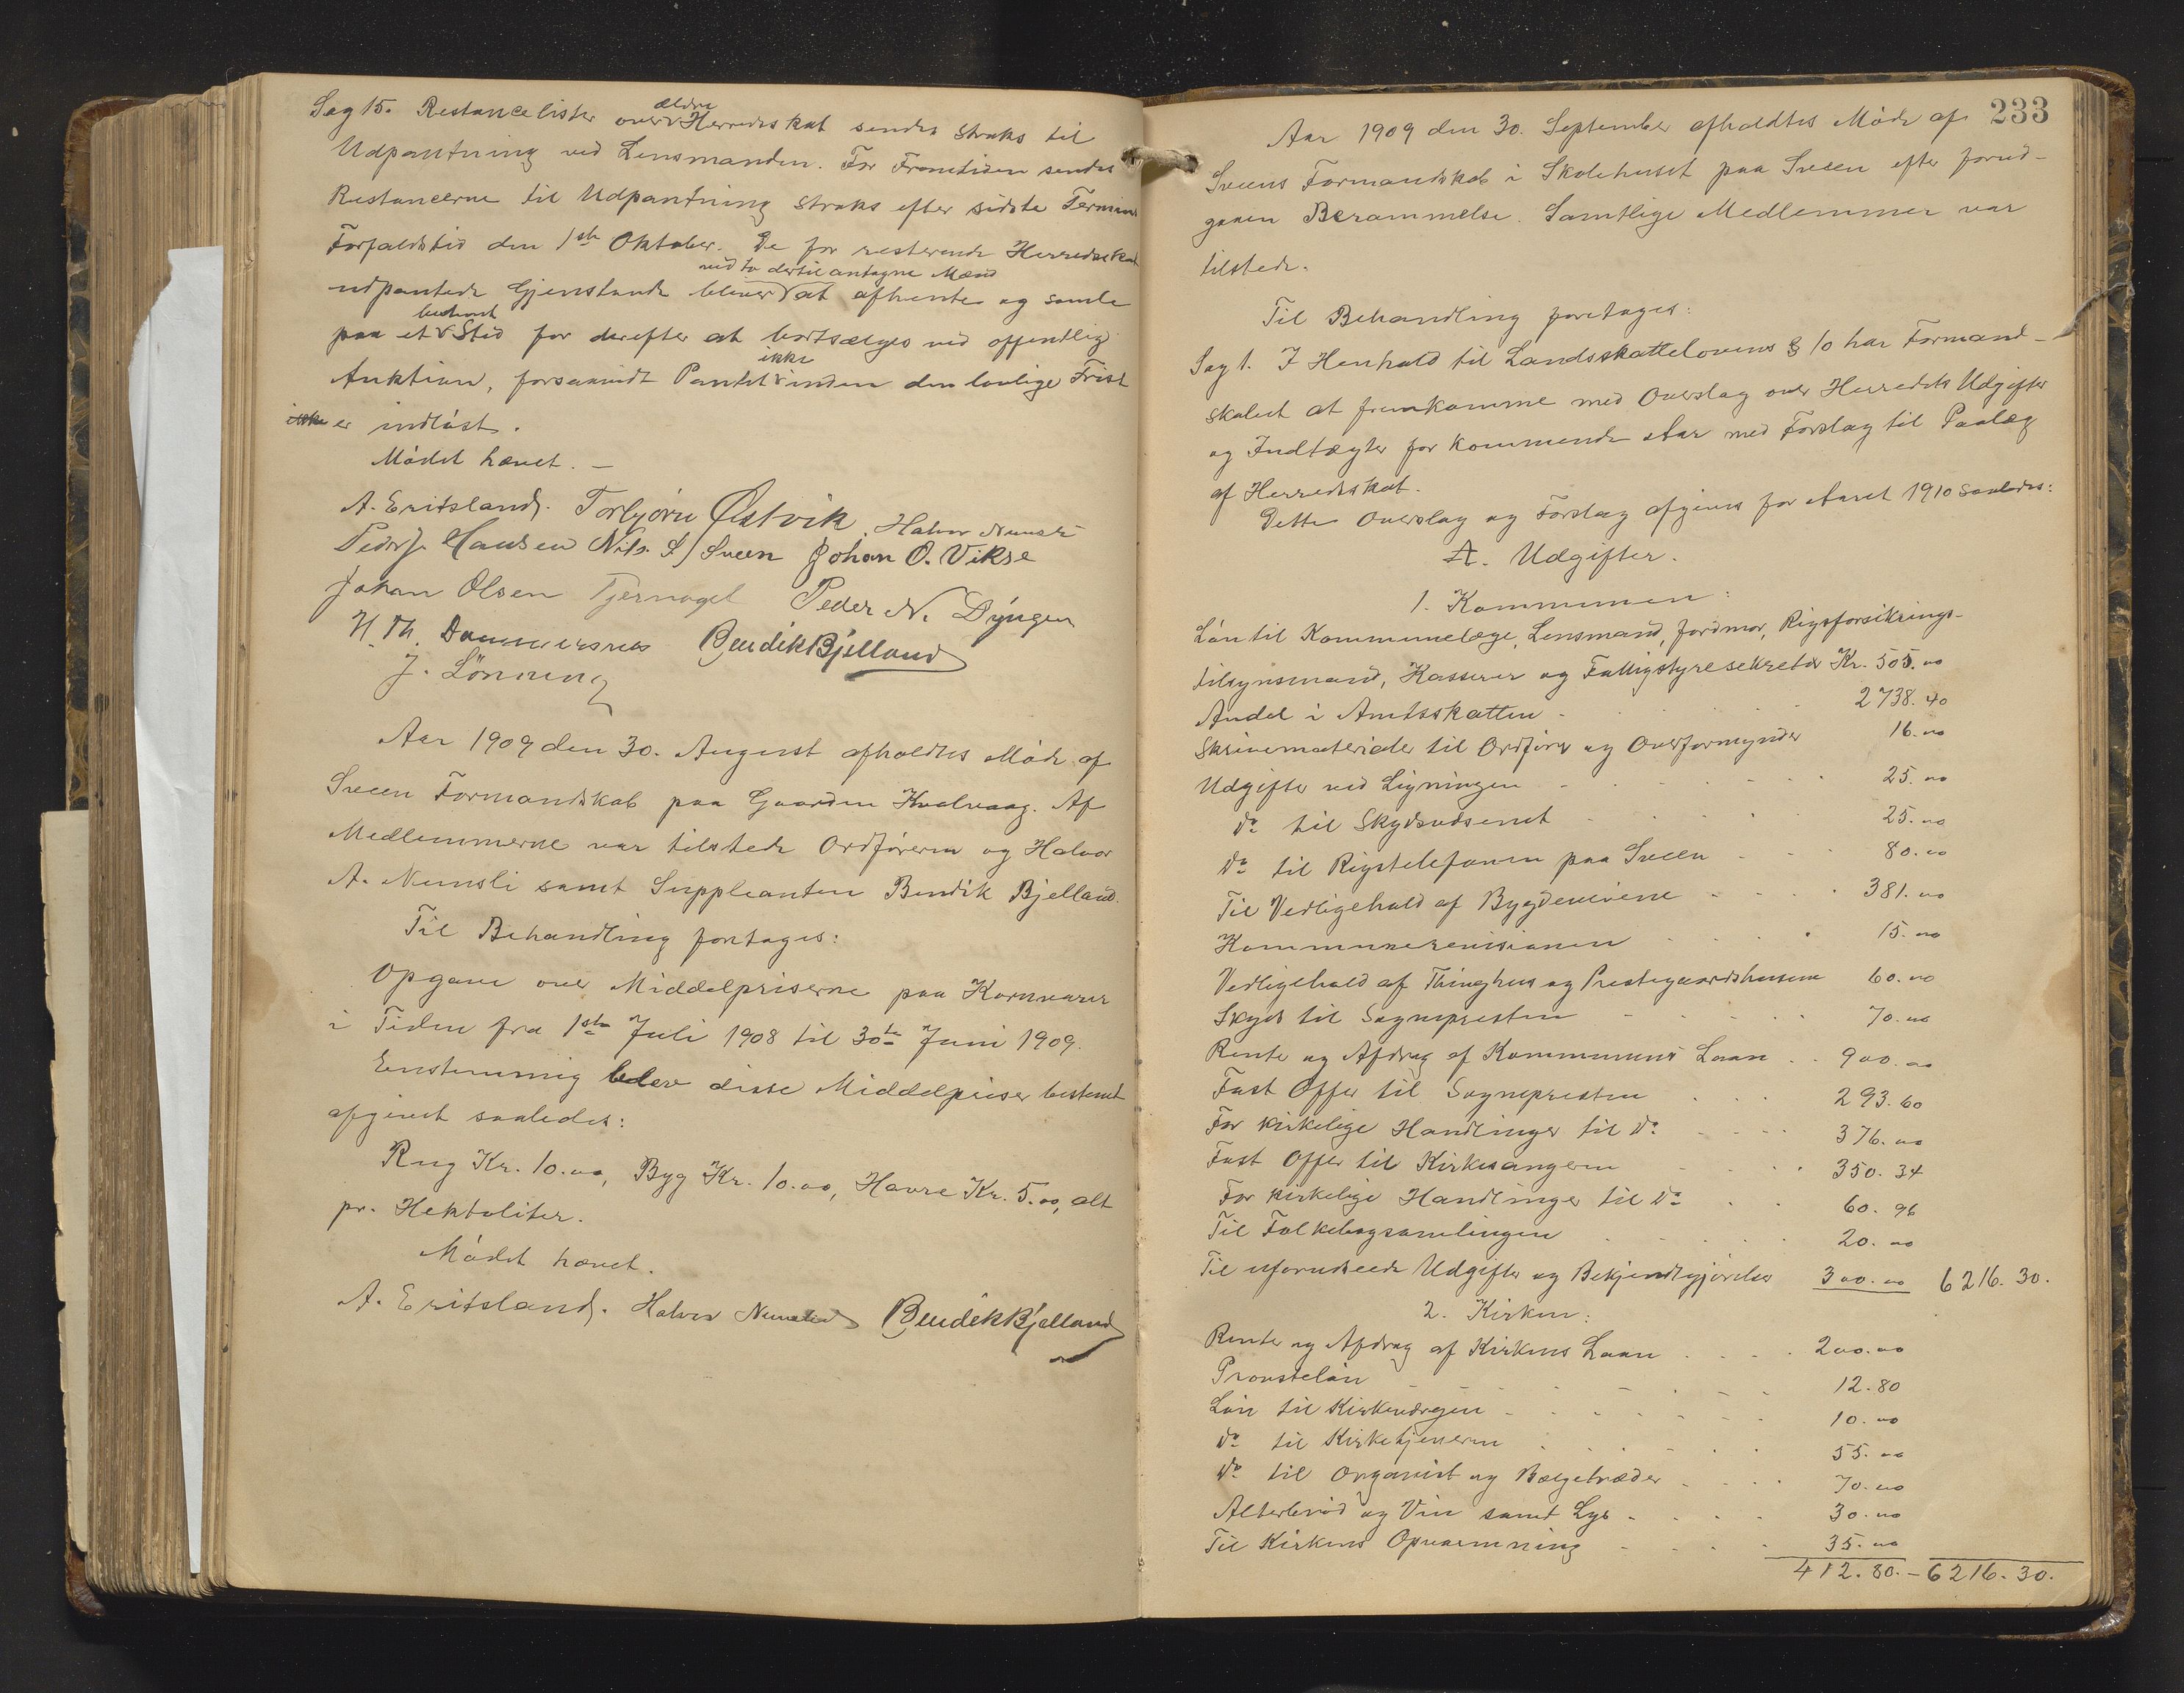 Sag 15. Restancelister over ældre Herredsskat sendes straks til
Udpantning ved Lensmanden. For Fremtiden sendes
Restancerne til Udpantning straks efter sidste Termins
Forfaldstid den 1ste Oktober. De for resterende Herredsskat
udpantede Gjenstande bliver ved to dertil antagne Mænd at afhente og samle
paa et bestemt Sted for derefter at bortsælges ved offentlig
Auktion, forsaavidt Pantet ikke inden den lovlige Frist
ikke er indløst.
Mødet hævet. —
A. Eritsland. Torbjørn Østvik. Halvor Numsli
Peder J. Hansen Nils S. Sveen Johan O. Vikse
Johan Olsen Tjernagel Peder N. Dyngen
H. Th. Bendik Bjelland
J. Lönning
Aar 1909 den 30. August afholdtes Møde af
Sveen Formandskab paa Gaarden Kvalvaag. Af
Medlemmerne var tilstede Ordføreren og Halvor
A. Numsli samt Suppleanten Bendik Bjelland.
Til Behandling foretages:
Opgave over Middelpriserne paa Kornvarer
i Tiden fra 1ste Juli 1908 til 30te Juni 1909.
Enstemmig blev disse Middelpriser bestemt
afgivet saaledes:
Rug Kr. 10.00, Byg Kr. 10.00, Havre Kr. 5.00, alt
pr. Hektoliter.
Mødet hævet.
A. Eritsland. Halvor Numsli Bendik Bjelland
233
Aar 1909 den 30. September afholdtes Møde af
Sveens Formandskab i Skolehuset paa Sveen efter forud-
gaaen Berammelse. Samtlige Medlemmer var
tilstede.
Til Behandling foretages:
Sag 1. I Henhold til Landsskattelovens § 10 har Formand-
skabet at fremkomme med Overslag over Herredets Udgifter
og Indtægter for kommende Aar med Forslag til Paalæg
af Herredsskat.
Dette Overslag og Forslag afgives for Aaret 1910 saaledes:
A. Udgifter.
1. Kommunen:
Løn til Kommunelæge, Lensmand, Jordmor, Rigsforsikrings-
tilsynsmand, Kasserer og Fattigstyresekretær Kr. 505.00
Andel i Amtsskatten 2738.40
Skrivematerialer til Ordfører og Overformynder 16.00
Udgifter ved Ligningen 25.00
do til Skydsvæsenet 25.00
do til Rigstelefonen paa Sveen 80.00
Til Vedligehold af Bygdeveiene 381.00
Kommunerevisionen 15.00
Vedligehold af Thinghus og Prestegaardshusene 60.00
Skyds til Sognepresten 70.00
Rente og Afdrag af Kommunens Laan 900.00
Fast Offer til Sognepresten 293.60
For kirkelige Handlinger til do 376.00
Fast Offer til Kirkesangeren 350.34
For kirkelige Handlinger til do 60.96
Til Folkebogsamlingen 20.00
Til uforudseede Udgifter og Bekjendtgjørelser 300.00 6216.30.
2. Kirken:
Renter og Afdrag af Kirkens Laan 200.00
Provsteløn 12.80
Løn til Kirkeværgen 10.00
do til Kirketjeneren 55.00
do til Organist og Bælgetræder 70.00
Alterbrød og Vin samt Lys 30.00
Til Kirkens Opvarmning 35.00
412.80. - 6216.30.